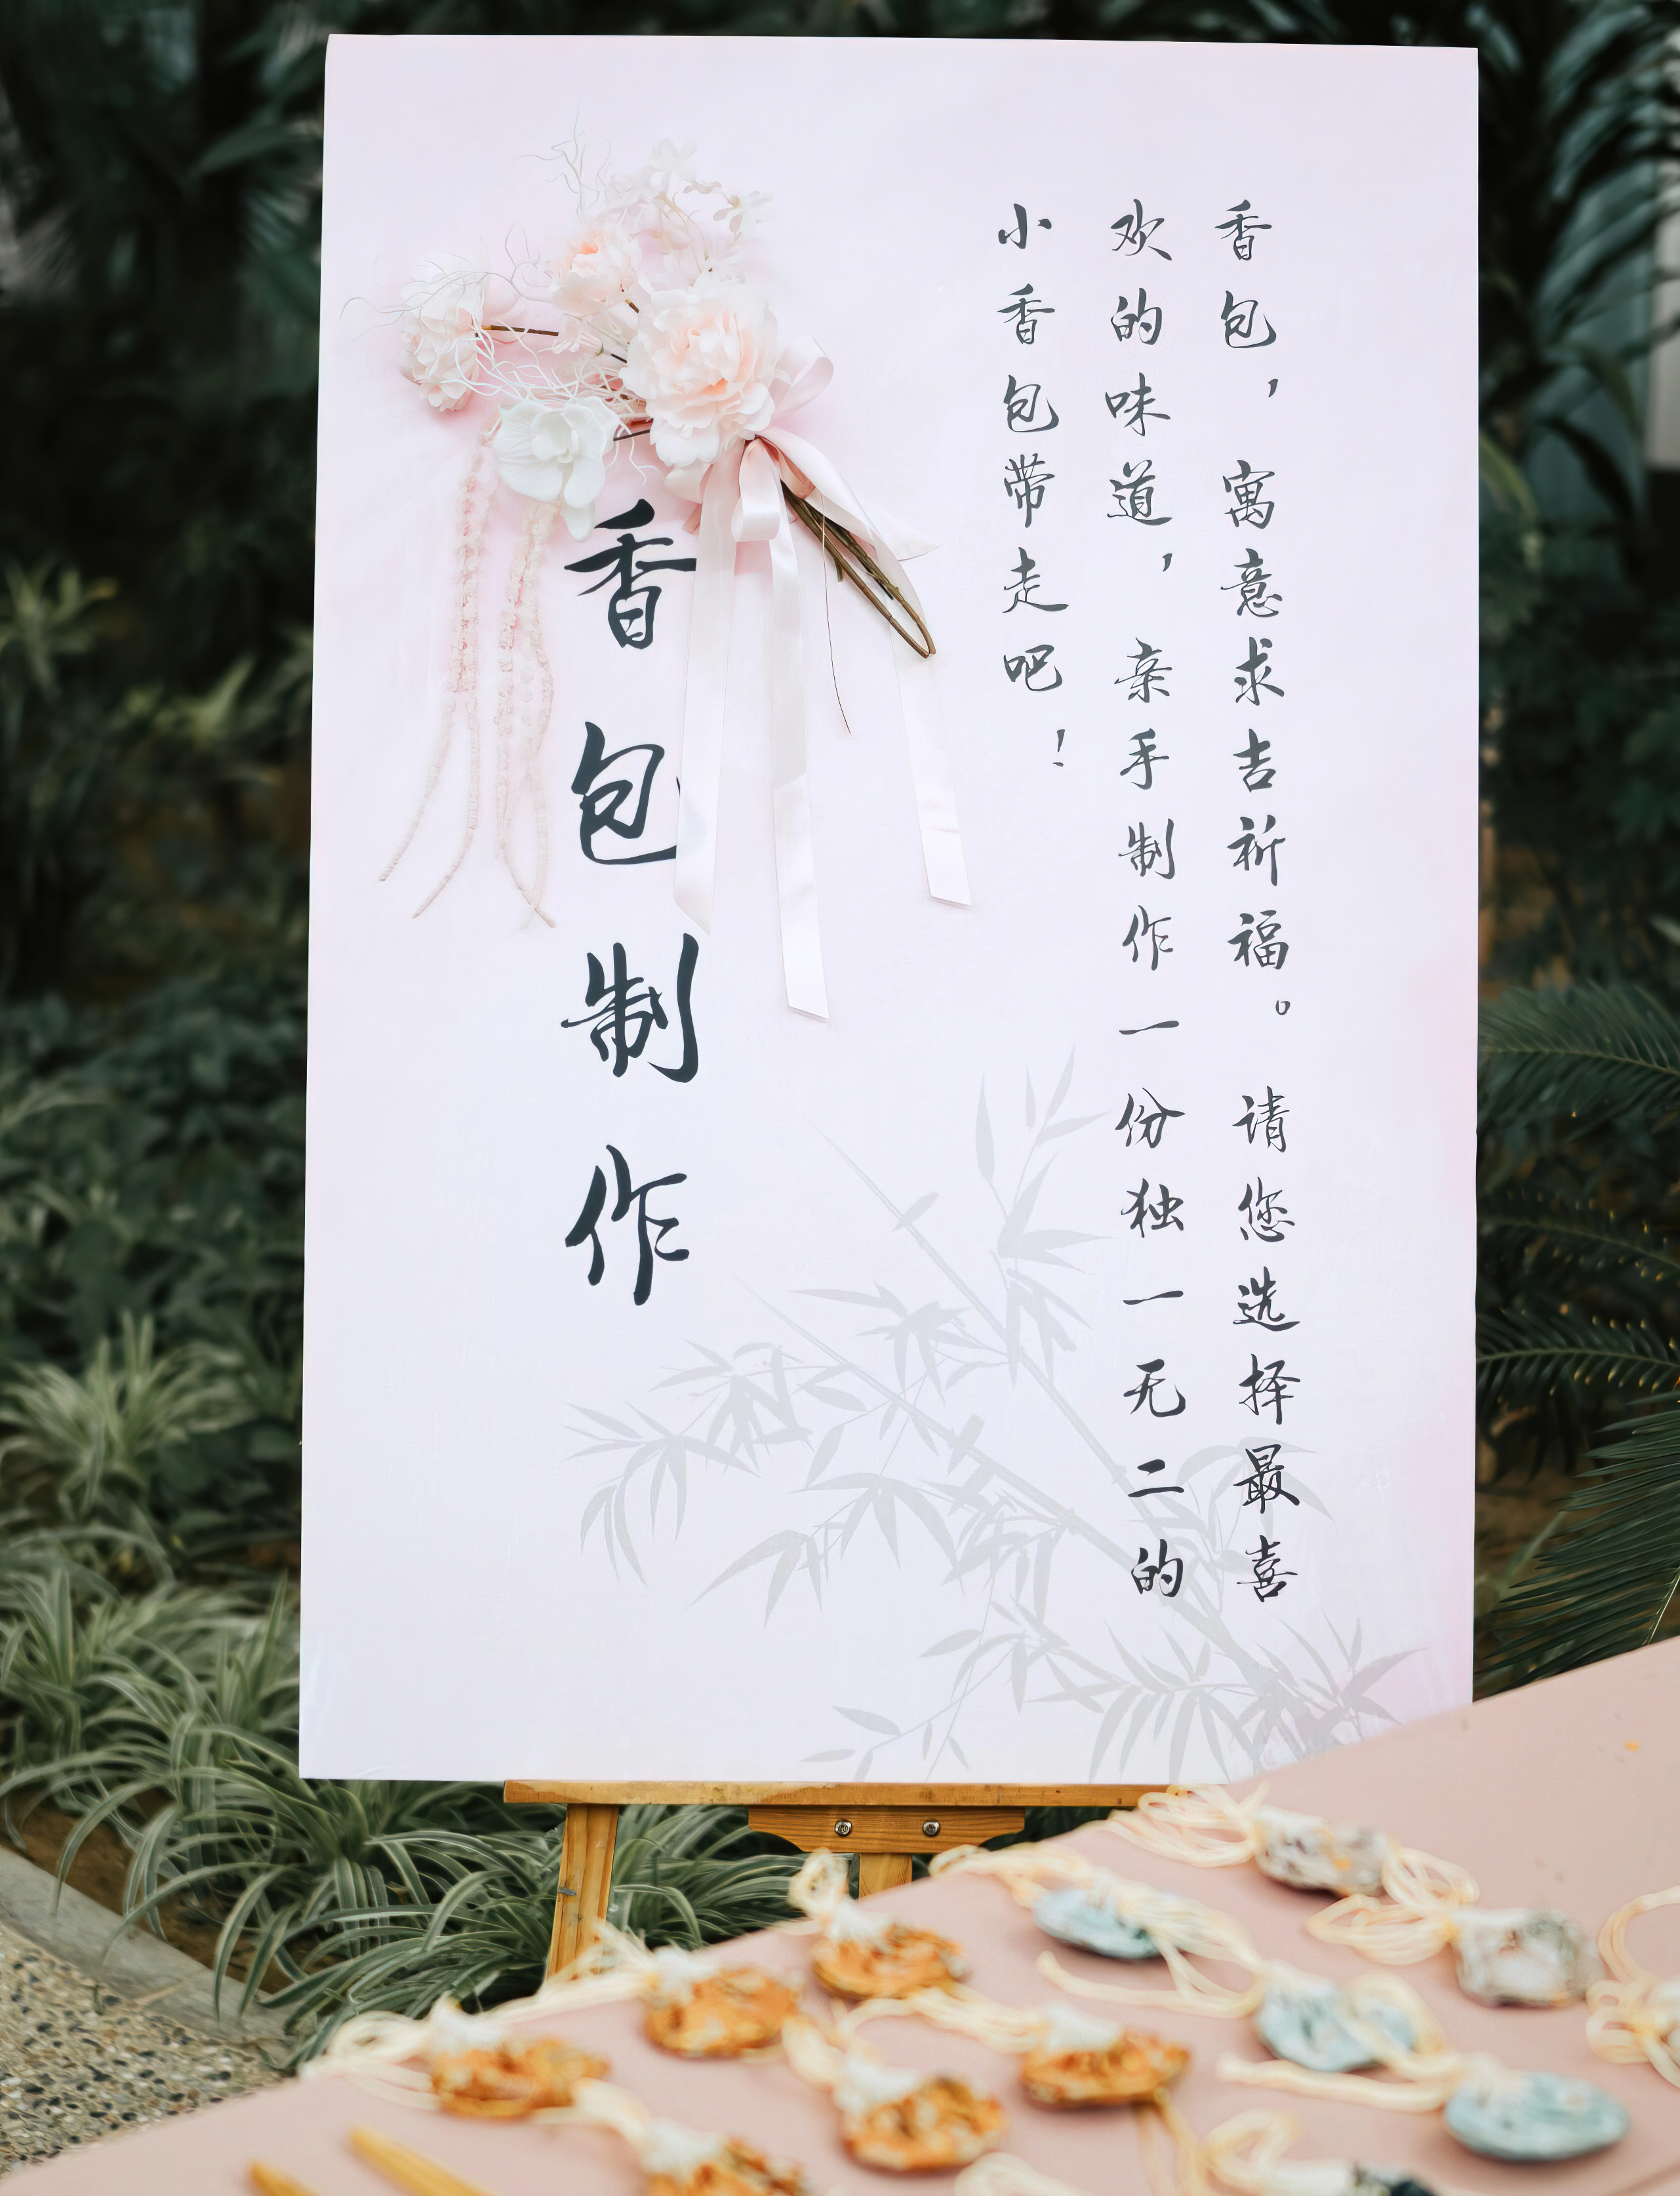 香包，寓意求吉祈福。请您选择最喜
欢的味道，亲手制作一份独一无二的
小香包带走吧！
香包制作